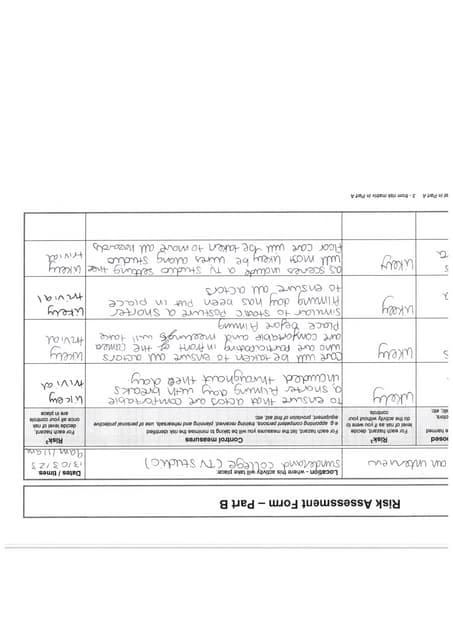 Risk Assessment Form – Part B
an interview
Location - where this activity will take place:
Sunderland College (TV Studio)
Dates / times
9am / 11am
Risk
For each hazard, decide
level of risk if you were to
do the activity without your
controls
Control measures
For each hazard, list the measures you will be taking to minimise the risk identified
e.g. appointing competent persons, training received, planning and rehearsals, use of personal protective
equipment, provision of first aid, etc.
Risk
For each hazard,
decide level of risk
once all your controls
are in place
likely
to ensure that actors are comfortable
a shorter filming day with breaks
included throughout the day
likely
trivial
likely
care will be taken to ensure all actors
who are participating infront of the camera
are comfortable and meetings will take
Place before filming
likely
trivial
likely
similar to static Posture a shorter
filming day has been put in place
to ensure all actors
likely
trivial
likely
as scenes include a TV studio setting there
will most likely be wires along studio
floor care will be taken to move all hazards
likely
trivial
3 - from risk matrix in Part A